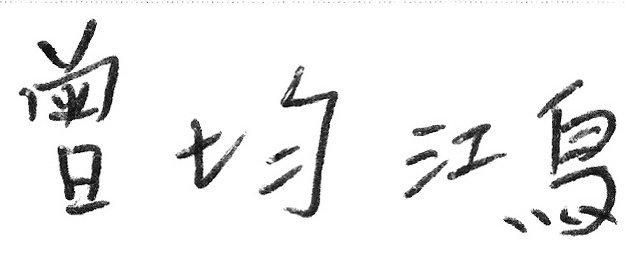 曾均鴻